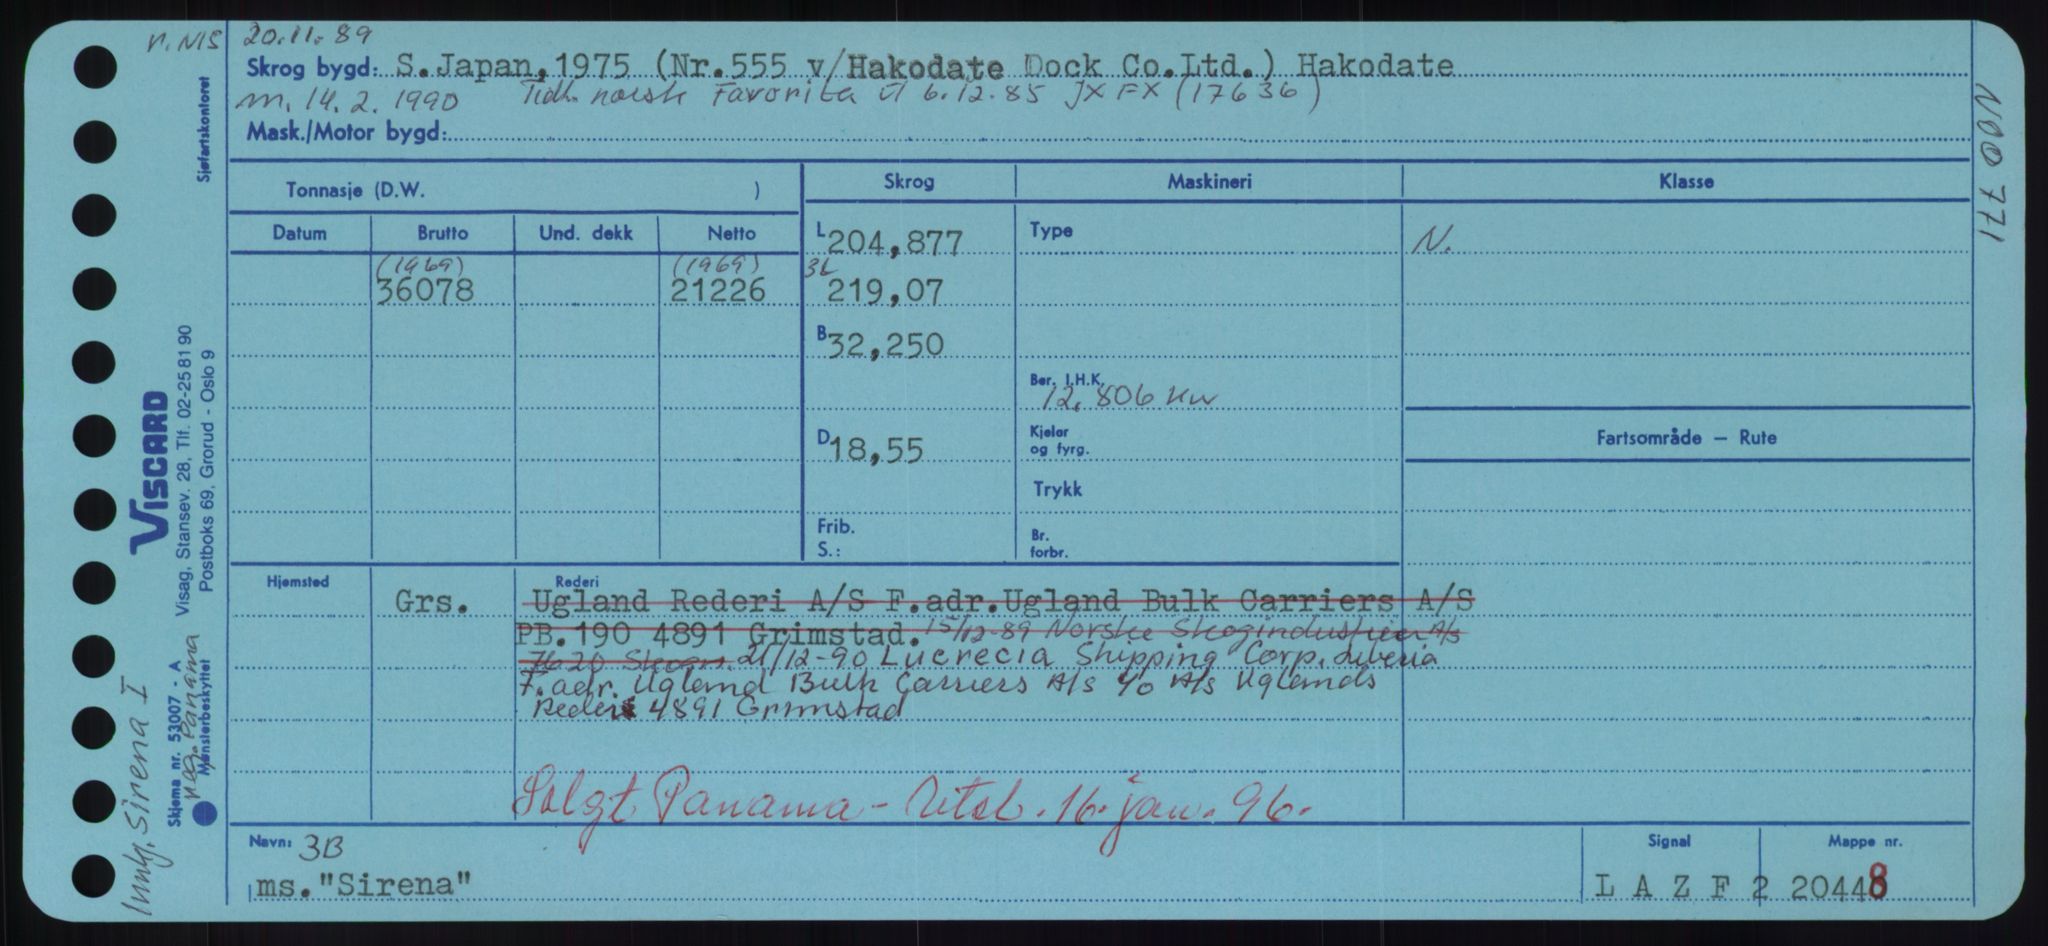 n. NIS 20.11.89
Skrog bygd: S.Japan, 1975 (Nr.555 v/Hakodate Dock Co.Ltd.) Hakodate
m. 14.2.1990 Tidl. norsk Favorita til 6.12.85 JXFX (17636)
Mask./Motor bygd:
Tonnasje (D.W. )
Skrog Maskineri Klasse
Datum Brutto Und. dekk Netto
(1969) (1969)
36078 21226
L 204,877
3L 219,07
B 32,250
D 18,55
Frib.
S.:
Type
Ber. I.H.K.
12,806 kw
Kjelar
og fyrg.
Trykk
Br.
forbr.
N.
Fartsområde – Rute
Hjemsted Rederi
Grs. Ugland Rederi A/S F.adr.Ugland Bulk Carriers A/S
PB.190 4891 Grimstad. 15/12-89 Norske Skogindustrier A/s
7620 Skogn 21/12-90 Lucrecia Shipping Corp. Liberia
F.adr. Ugland Bulk Carriers A/s c/o A/s Uglands
Rederi 4891 Grimstad
Solgt Panama – Utsl. 16. jan. 96.
Navn: 3B
ms."Sirena"
Signal
L A Z F 2
Mappe nr.
20448
N00771
Sjøfartskontoret
VISCARD
Visag, Stansev. 28, Tlf. 02-25 81 90
Postboks 69, Grorud - Oslo 9
Skjema nr. 53007 - A
Mønsterbeskyttet
reg. Panama
Innlg. Sirena I